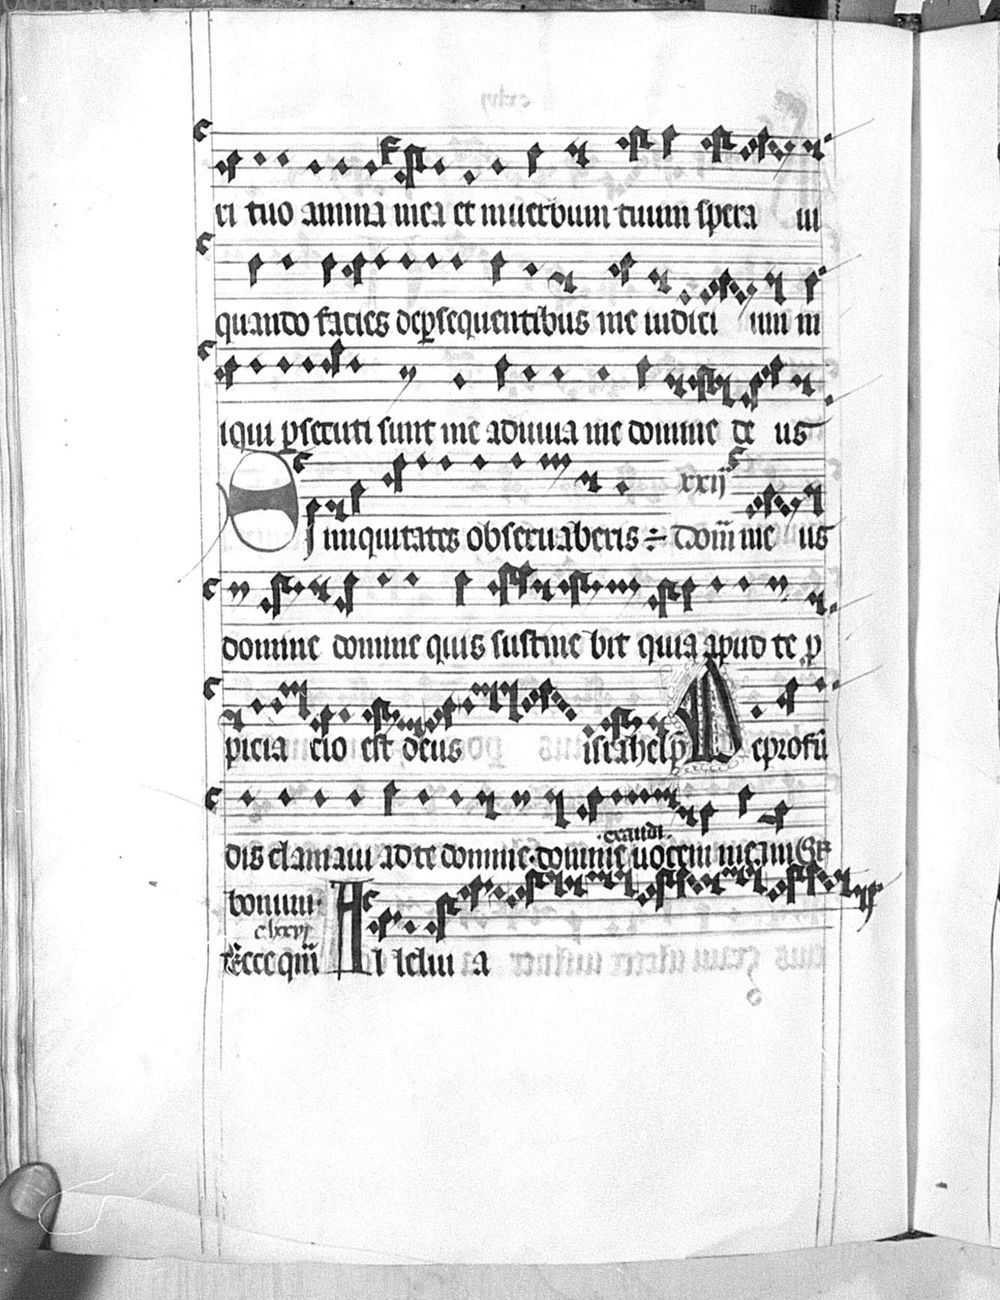 ri tuo anima mea et in uerbum tuum spera ui
quando facies de persequentibus me iudici um in
iqui persecuti sunt me adiuua me domine de us
xxij
SI iniquitates obseruaberis domine us
domine domine quis sustine bit quia apud te p
picia cio est deus israhel ps De profun
dis clamaui ad te domine domine exaudi uocem meam GR
bonum
clxxvj
Ecce qm Al lelui a